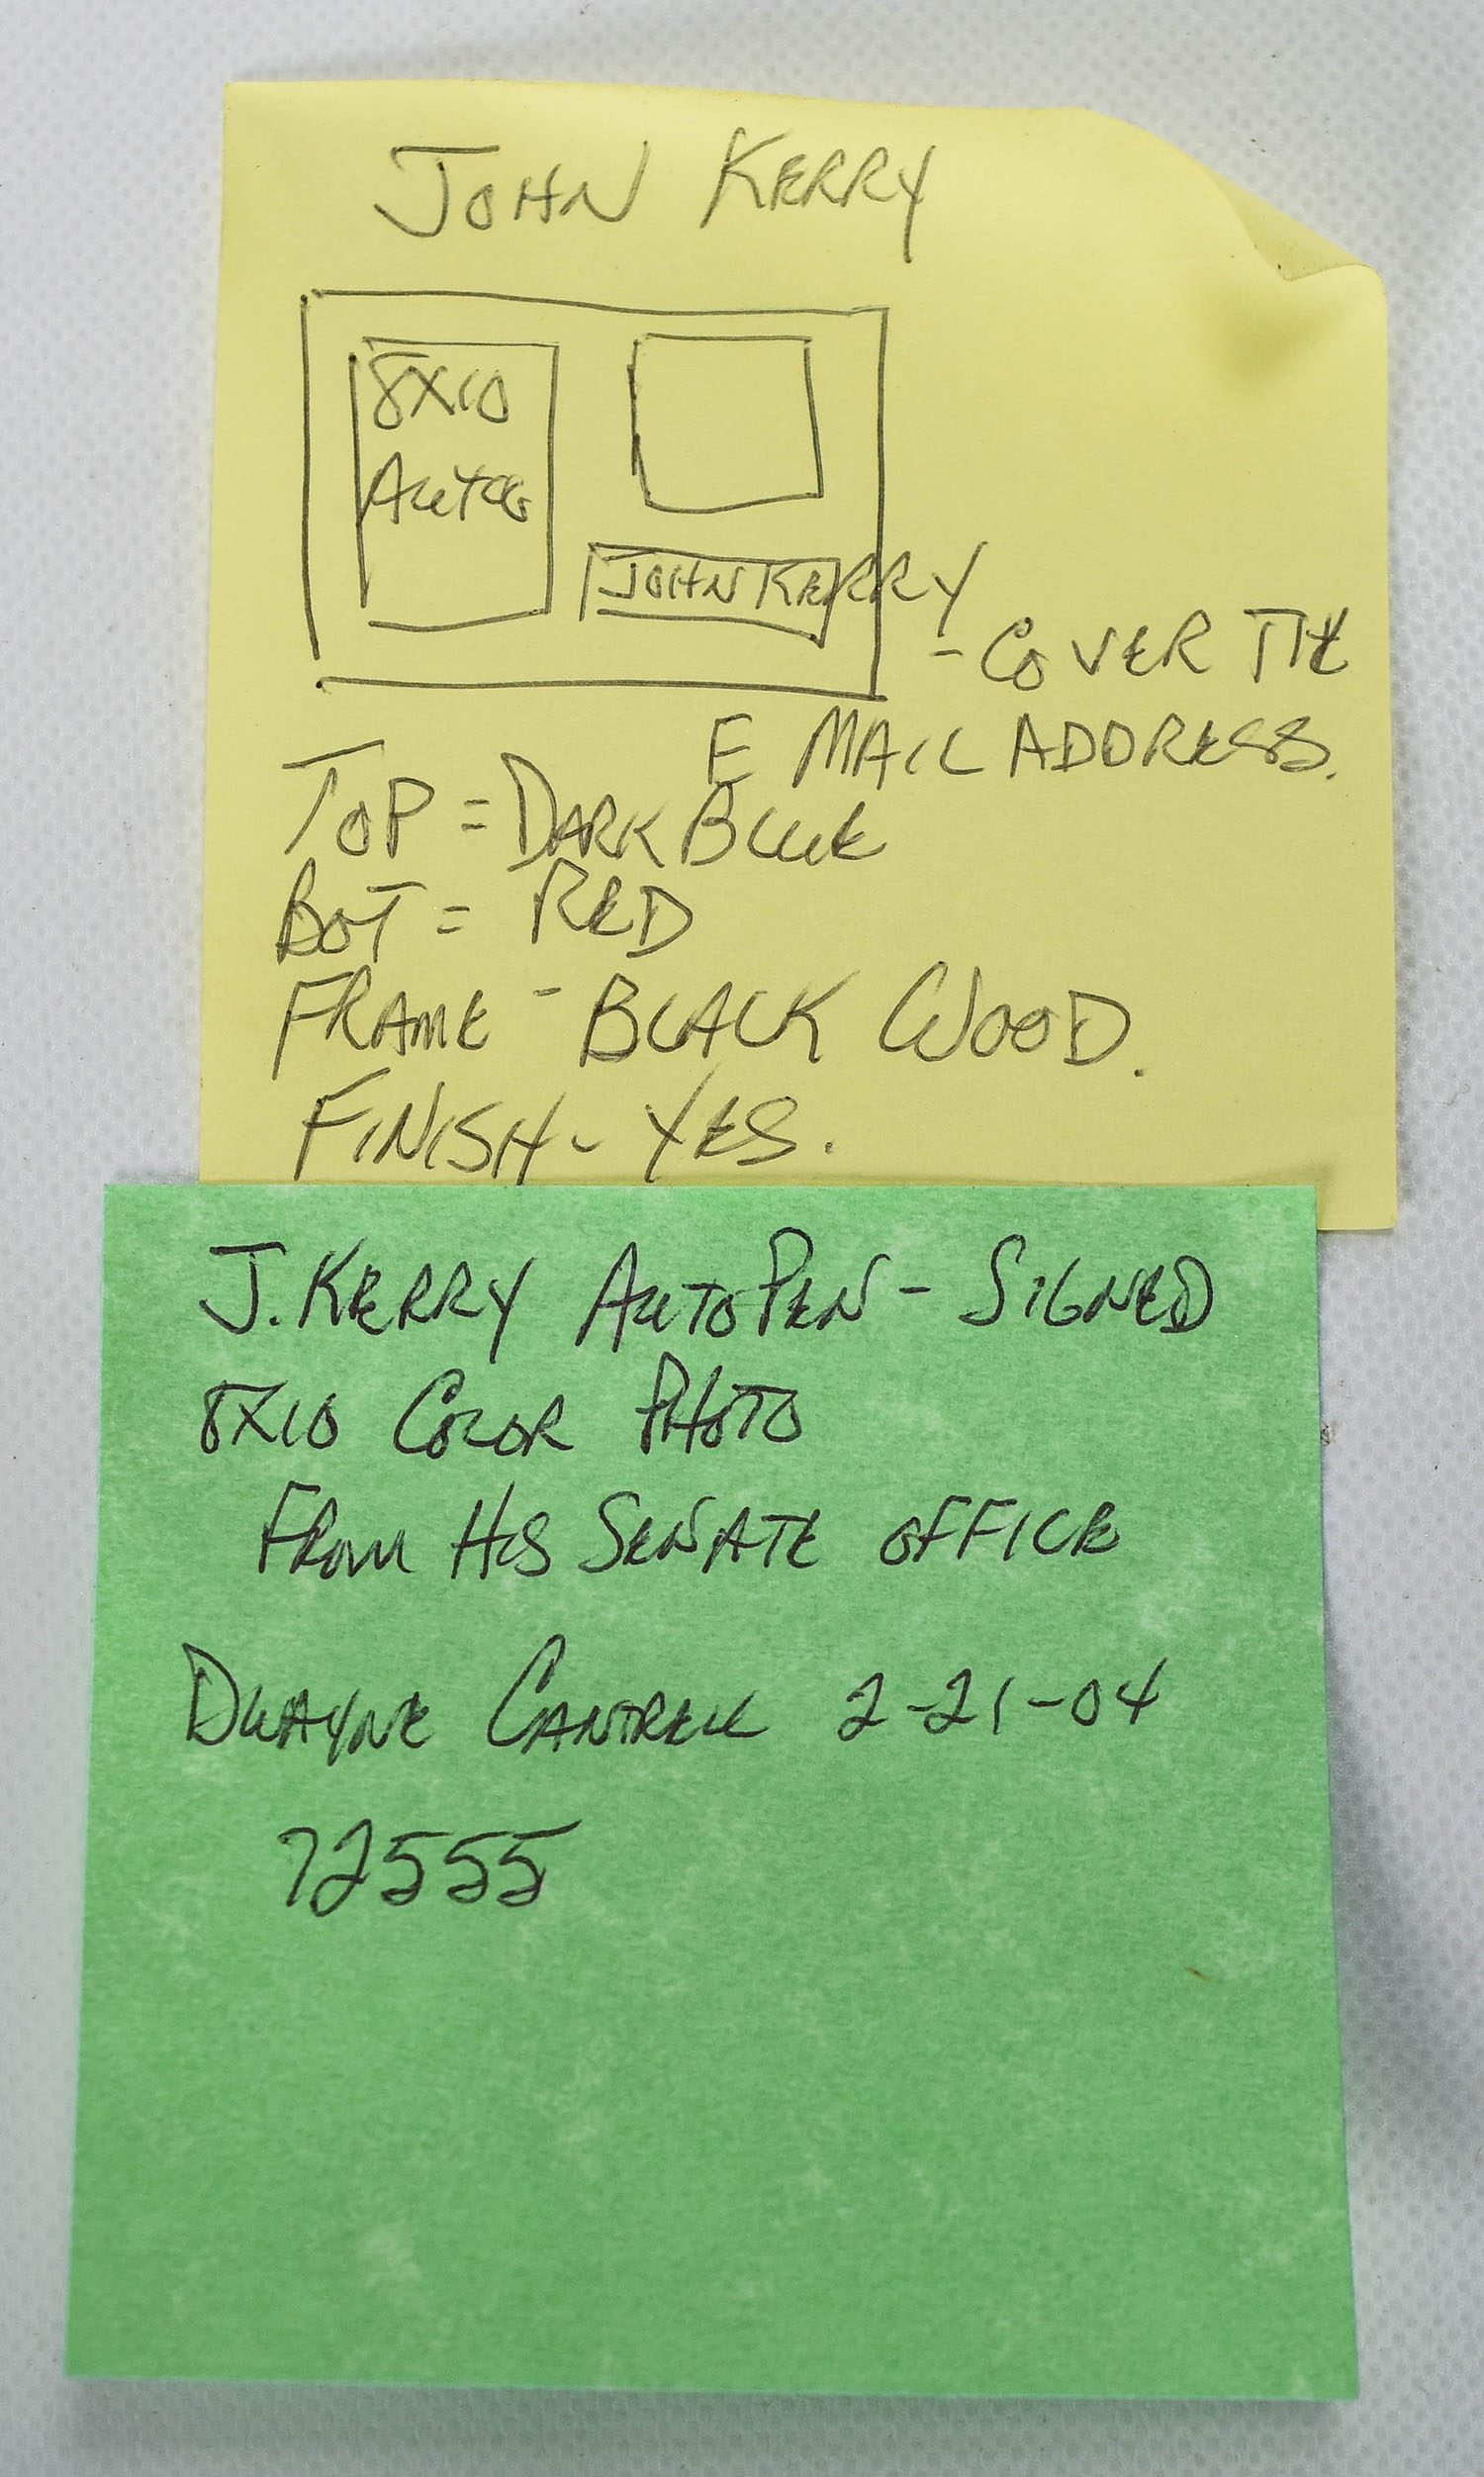 JOHN KERRY
8X10
AUTOG
JOHN KERRY
- COVER THE
E MAIL ADDRESS.
TOP = DARK BLUE
BOT = RED
FRAME - BLACK WOOD.
FINISH - YES.
J. KERRY AUTOPEN - SIGNED
8X10 COLOR PHOTO
FROM HIS SENATE OFFICE
DWAYNE CANTRELL 2-21-04
72555